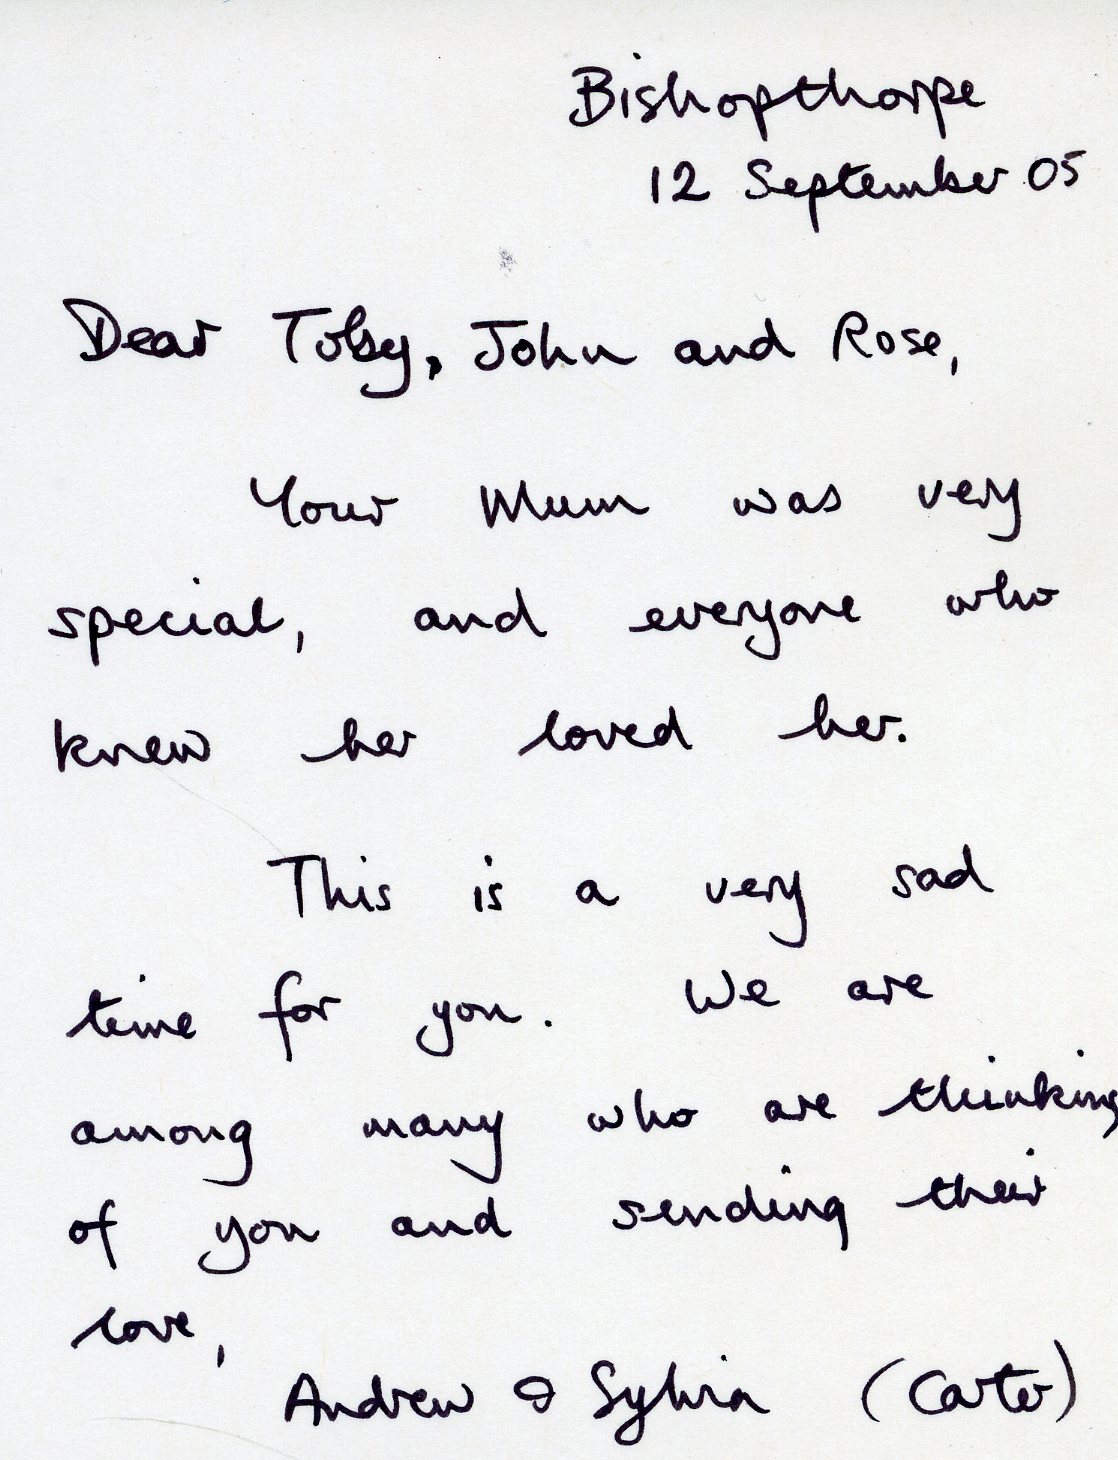 Bishopthorpe
12 September 05
Dear Toby, John and Rose,
Your Mum was very
special, and everyone who
knew her loved her.
This is a very sad
time for you. We are
among many who are thinking
of you and sending their
love,
Andrew & Sylvia (Carter)